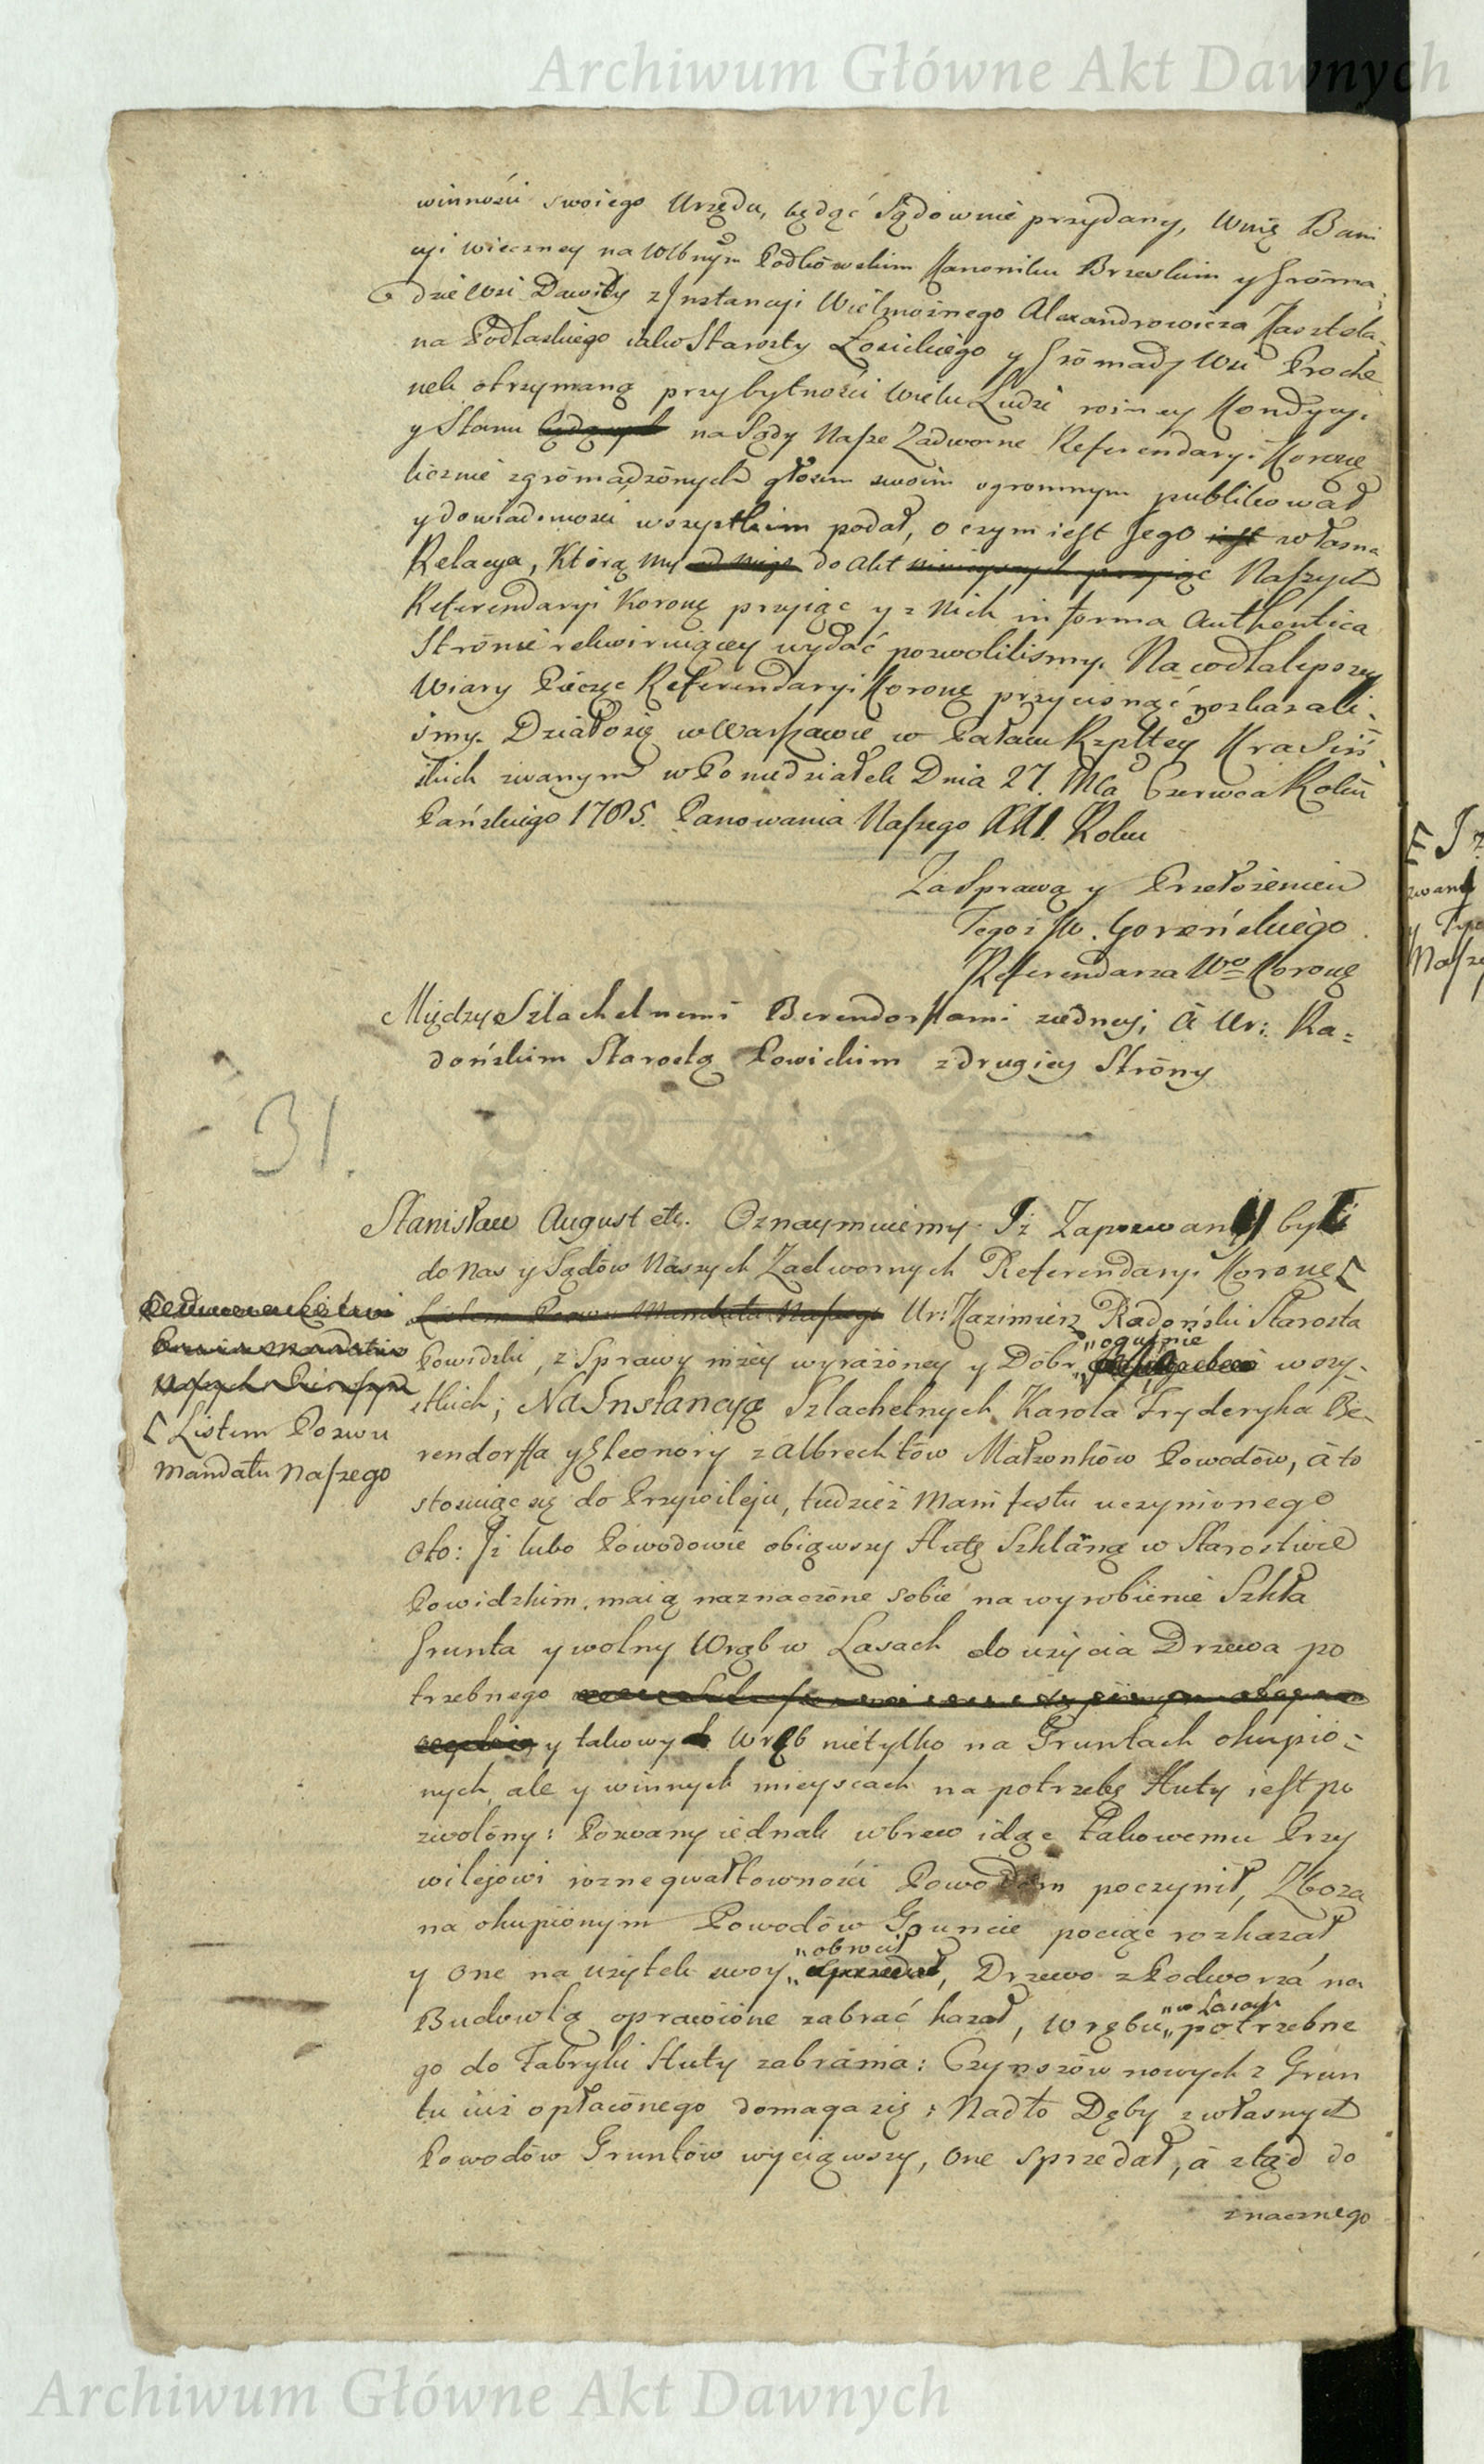 Archiwum Główne Akt Dawnych
winności swoiego Urzędu, będąć Sądownie przydany, Winę Bani
cyi wieczney na Wlbnym Podkówskim Kanoniku Brzeskim y Gróma-
dzie Wsi Dawidy z Jnstancyi Wielmożnego Alexandrowicza Kasztela-
na Podlaskiego iako Starosty Łosickiego y Grómady Wsi Proche
nek otrzymaną przy bytności wielu Ludzi rożney Kondycyi
y Stanu na Sądy Nasze Zadworne Referendaryi Koronę
licznie zgrómadzónych głosem swoim ogromnym publikował
y do wiadomości wszystkim podał, o czym iest Jego iest własna
Relacya, Którą my od niego do Akt ninieyszych przyiąć Naszych
Referendaryi Koronę przyiąc y z nich in forma Authentica
Strónie rekwiruiącey wydać pozwolilismy. Na co dla lepszey
Wiary Pieczęc Referendaryi Koronę przycisnąć rozkazali-
smy. Działo się w Warszawie w Pałacu Rzpltey Krasiń-
skich zwanym w Poniedziałek Dnia 27. Mca Czerwca Roku
Pańskiego 1785. Panowania Naszego XXI. Roku
Za Sprawą y Przełożeniem
Tegoż W. Gorzeńskiego
Referendarza Wo Koronę
Między Szlachetnemi Berendorffami z iedney, à Ur: Ra=
dońskim Starostą Powidzkim z drugiey Stróny
31.
Stanisław August etc. Oznaymuiemy. Iż Zapozwany był
do Nas y Sądów Naszych Zadwornych Referendaryi Koronę
Listem Pozwu Mandatu Naszego Ur: Kazimierz Radoński Starosta
Powidzki, z Sprawy niżey wyrażóney y Dóbr „ogulnie wszy-
stkich; Na Jnstancyą Szlachetnych Karola Fryderyka Be-
rendorffa y Eleonory z Albrechtów Małżonków Powodów, à to
Listem Pozwu
Mandatu Naszego
stosuiąc się do Przywileju, tudzież Manifestu uczynionego
oto: Jż lubo Powodowie obiąwszy Hutę Szkląną w Starostwie
Powidzkim, maią naznaczóne sobie na wyrobienie Szkła
Grunta y wolny Wrąb w Lasach do użycia Drzewa po
trzebnego
y takowy Wrąb nietylko na Gruntach okupio=
nych, ale y w innych mieyscach na potrzebę Huty iest po
zwolóny: Pozwany iednak wbrew idąc takowemu Przy
wilejowi rożne gwałtowności Powodom poczynił, Zboża
na okupionym Powodów Gruncie pociąc rozkazał
y one na użytek swoy „obrócił, Drzewo z Podworza na
Budowlą oprawione zabrać kazał, wrębu „w Lasach potrzebne
go do Fabryki Huty zabrania: Czynszów nowych z Grun
tu iuż opłacónego domaga się; Nadto Dęby z własnych
Powodów Gruntów wyciąwszy, one sprzedał, à ztąd do
znacznego
Archiwum Główne Akt Dawnych